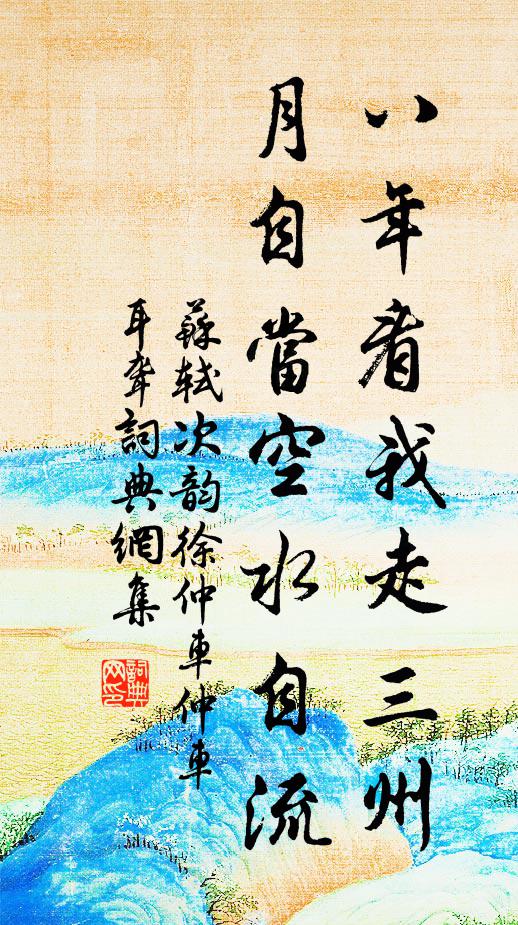 八年看我走三州
月自當空水自流
蘇軾次韵徐仲車仲車
耳聾詞典網集
詞典网印